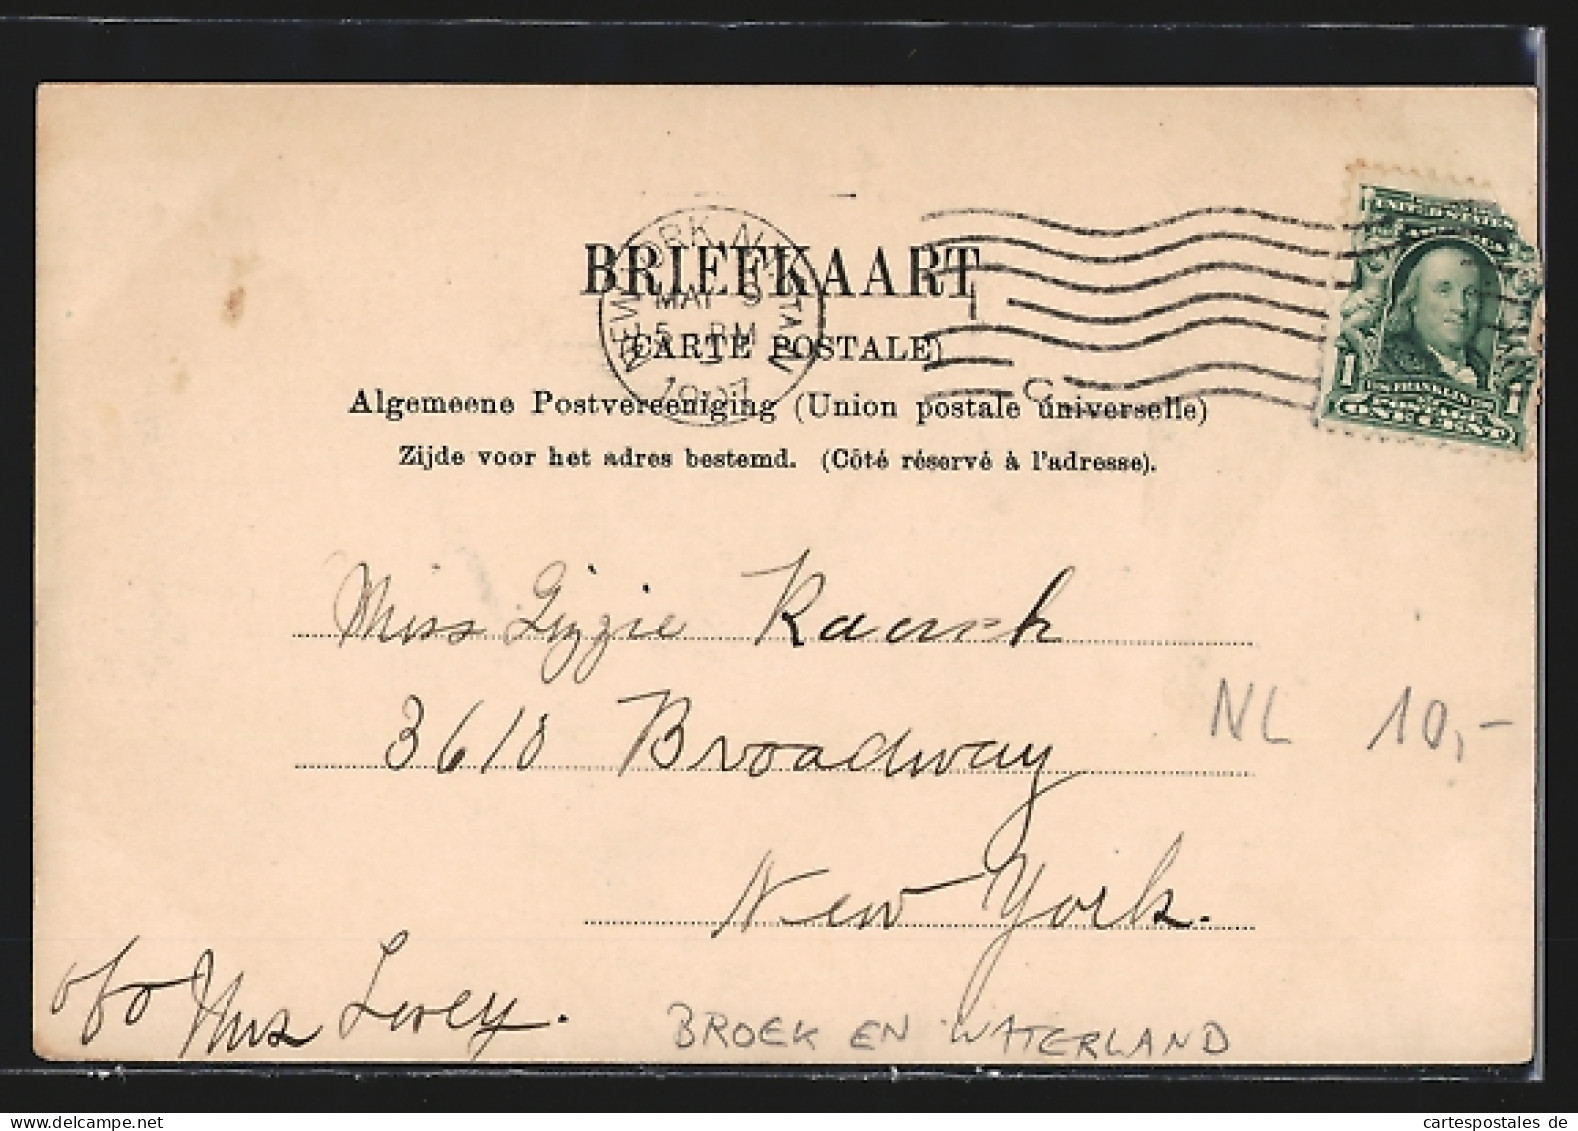 NEW YORK, N.Y. STA. N
MAY 9
5 PM
1907
BRIEFKAART
(CARTE POSTALE)
Algemeene Postvereeniging (Union postale universelle)
Zijde voor het adres bestemd. (Côté réservé à l'adresse).
UNITED STATES
OF AMERICA
1 FRANKLIN 1
ONE CENT
C
Miss Lizzie
3618 Broadway
New York.
c/o Mrs
NL 10,-
BROEK EN WATERLAND
www.cartespostales.eu
cartespostales de